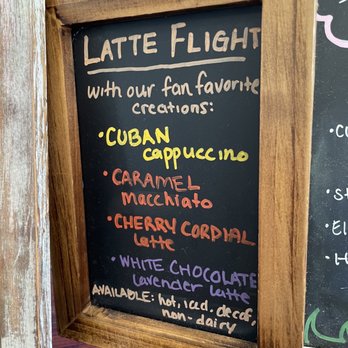 LATTE FLIGHT
with our fan favorite
creations:
• CUBAN
cappuccino
• CARAMEL
macchiato
• CHERRY CORDIAL
latte
• WHITE CHOCOLATE
lavender latte
AVAILABLE: hot, iced, decaf,
non-dairy